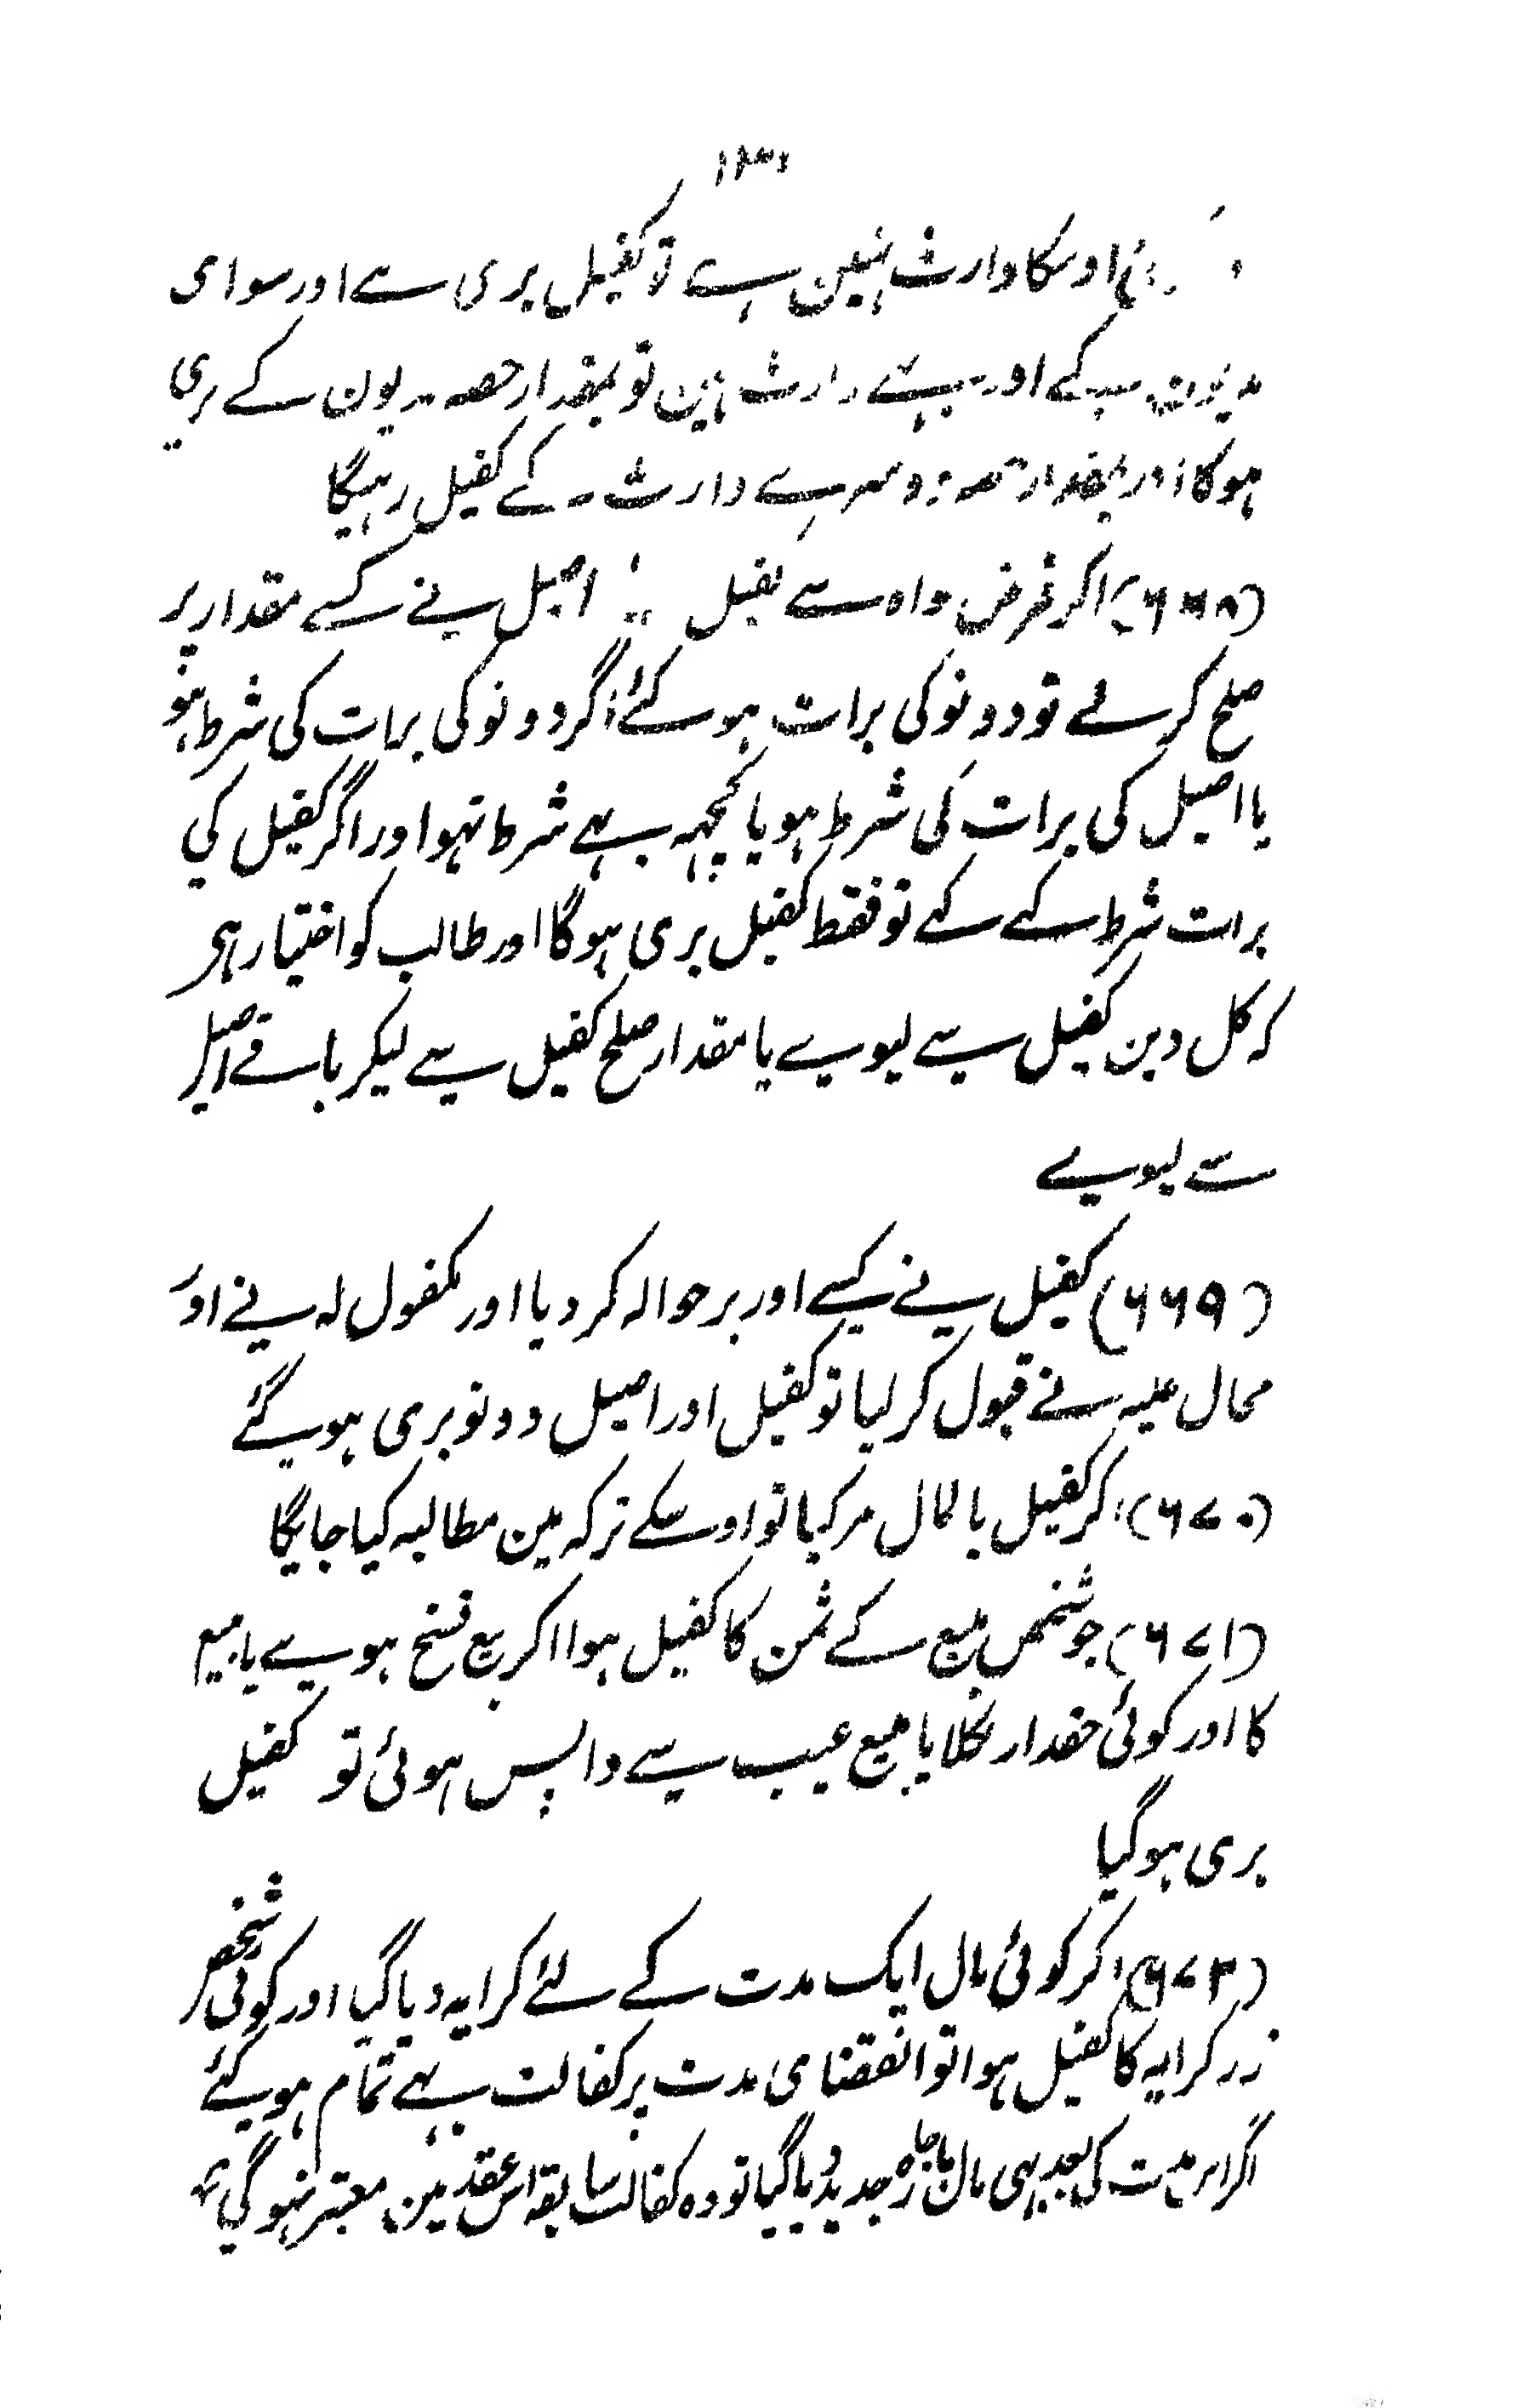 اوسکا وارث نہین ہے تو کفیل بری ہے اور سوای
مدیون کے اور بہی وارث ہین تو بمقدار حصہ مدیون کے بری
ہوگا اور بمقدار حصہ دوسرے وارث کے کفیل رہیگا
(٦٦٨) اگر قرض خواہ سے کفیل یا اصیل نے کسے مقدار پر
صلح کرلے تو دونو کی برات ہوگئے اگر دونو کی برات کی شرط ہو
یا اصیل کی برات کی شرط ہو یا کچہہ بہے شرط نہو اور اگر کفیل کی
برات شرط کے گئے تو فقط کفیل بری ہوگا اور طالب کو اختیار ہی
کہ کل دین کفیل سے لیوے یا مقدار صلح کفیل سے لیکر باقے اصیل
سے لیوے
(٦٦٩) کفیل نے کسے اور پر حوالہ کردیا اور مکفول لہ نے اور
محال علیہ نے قبول کرلیا تو کفیل اور اصیل دونو بری ہوگئے
(٦٧٠) اگر کفیل بالمال مرگیا تو اوسکے ترکہ مین مطالبہ کیا جایگا
(٦٧١) جو شخص مبیع کے ثمن کا کفیل ہوا اگر بیع فسخ ہوے یا مبیع
کا اور کوئی حقدار نکلا یا مبیع عیب سے واپس ہوئی تو کفیل
بری ہوگیا
(٦٧٢) اگر کوئی مال ایک مدت کے لئے کرایہ دیا گیا اور کوئی شخص
زر کرایہ کا کفیل ہوا تو انقضای مدت پر کفالت بہے تمام ہوگئے
اگر اس مدت کی بعد یہی مال باجارہ جدید دیا گیا تو وہ کفالت سابقہ اس عقد مین معتبر نہوگی